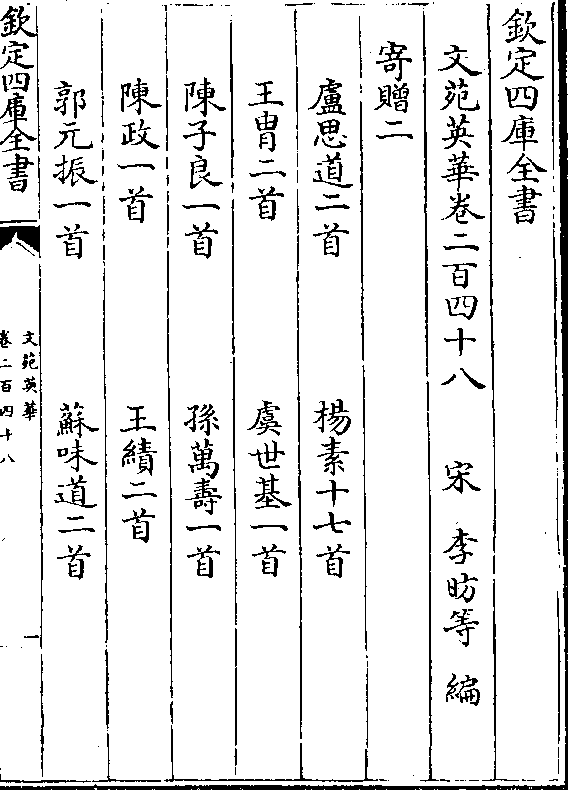 欽定四庫全書
文苑英華卷二百四十八 宋 李昉等 編
寄贈二
盧思道二首 楊素十七首
王胄二首 虞世基一首
陳子良一首 孫萬壽一首
陳政一首 王績二首
郭元振一首 蘇味道二首
欽定四庫全書
文苑英華
卷二百四十八
一